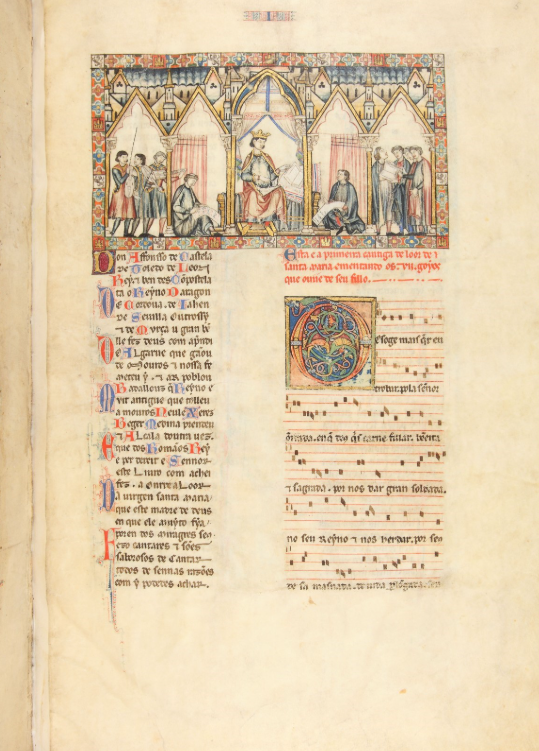 I
Don Affonso de Castela
de Toledo de Leon
Rey e ben des Conpostela
ta o Reyno Daragon
De Cordova. de Iahen
De Sevilla outrossy
e de Murça u gran bē
lle fez deus com apndi
Do Algarve que gãou
de mouros e nossa fe
meteu y. e ar poblou
Badallouz q Reyno e
Muit antigue que tolleu
a mouros Neule Xeres
Beger Medina prendeu
e Alcala doutra vez.
E que dos Romãos Rey
e per dereit e Sennor
este Livro com achei
fez. a onrr e a Loor
Da virgen santa maria
que este madre de deus
en que ele muyto fya.
Poren dos miragres seus
fezo cantares e sões
saborosos de Cantar
todos de sennas razões
com y podedes achar.
Esta e a primeira cantiga de loor de
santa maria ementando os .vii. goyos
que ouve de seu fillo.
Des oge mais q̃r eu
trobar. pola señor
onrrada. en q̃ deus q̃s carne fillar. bẽeita
e sagrada. por nos dar gran soldada.
no seu Reyno e nos herdar. por seus
de sa masnada. de vida plõgada. sen